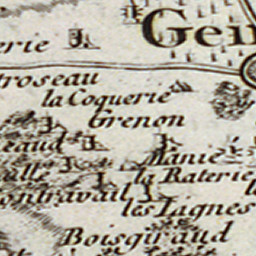 Gei
erie
troseau
la Coquerie
Grenon
eaud
Manie
la Raterie
ontravail
les Lignes
Boisgiraud